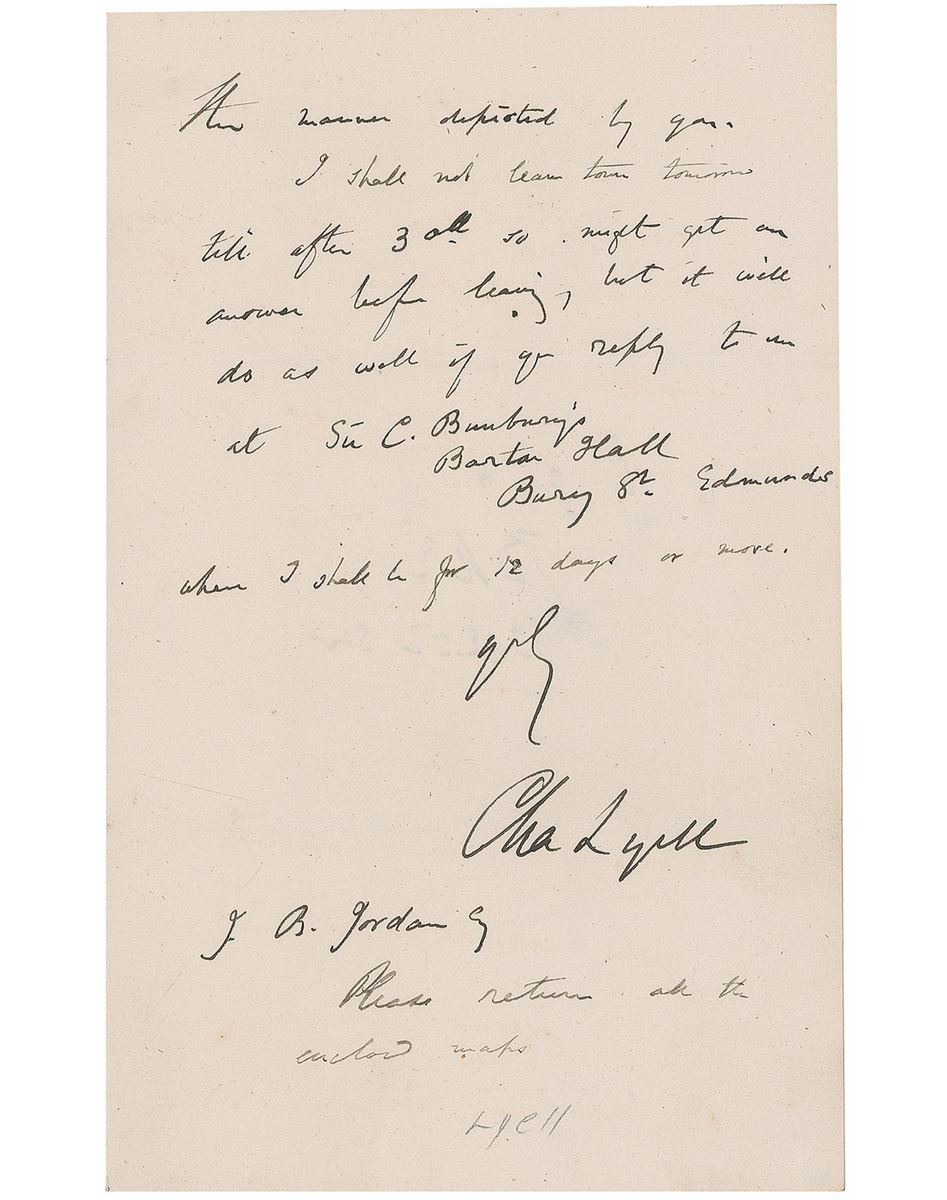 the manner depicted by you.
I shall not leave town tomorrow
till after 3 oclk so might get an
answer before leaving, but it will
do as well if you reply to me
at Sir C. Bunbury's
Barton Hall
Bury St. Edmunds
where I shall be for 12 days or more.
yrs ly
Cha Lyell
J. B. Jordan Esq
Please return all the
enclosed maps
Lyell